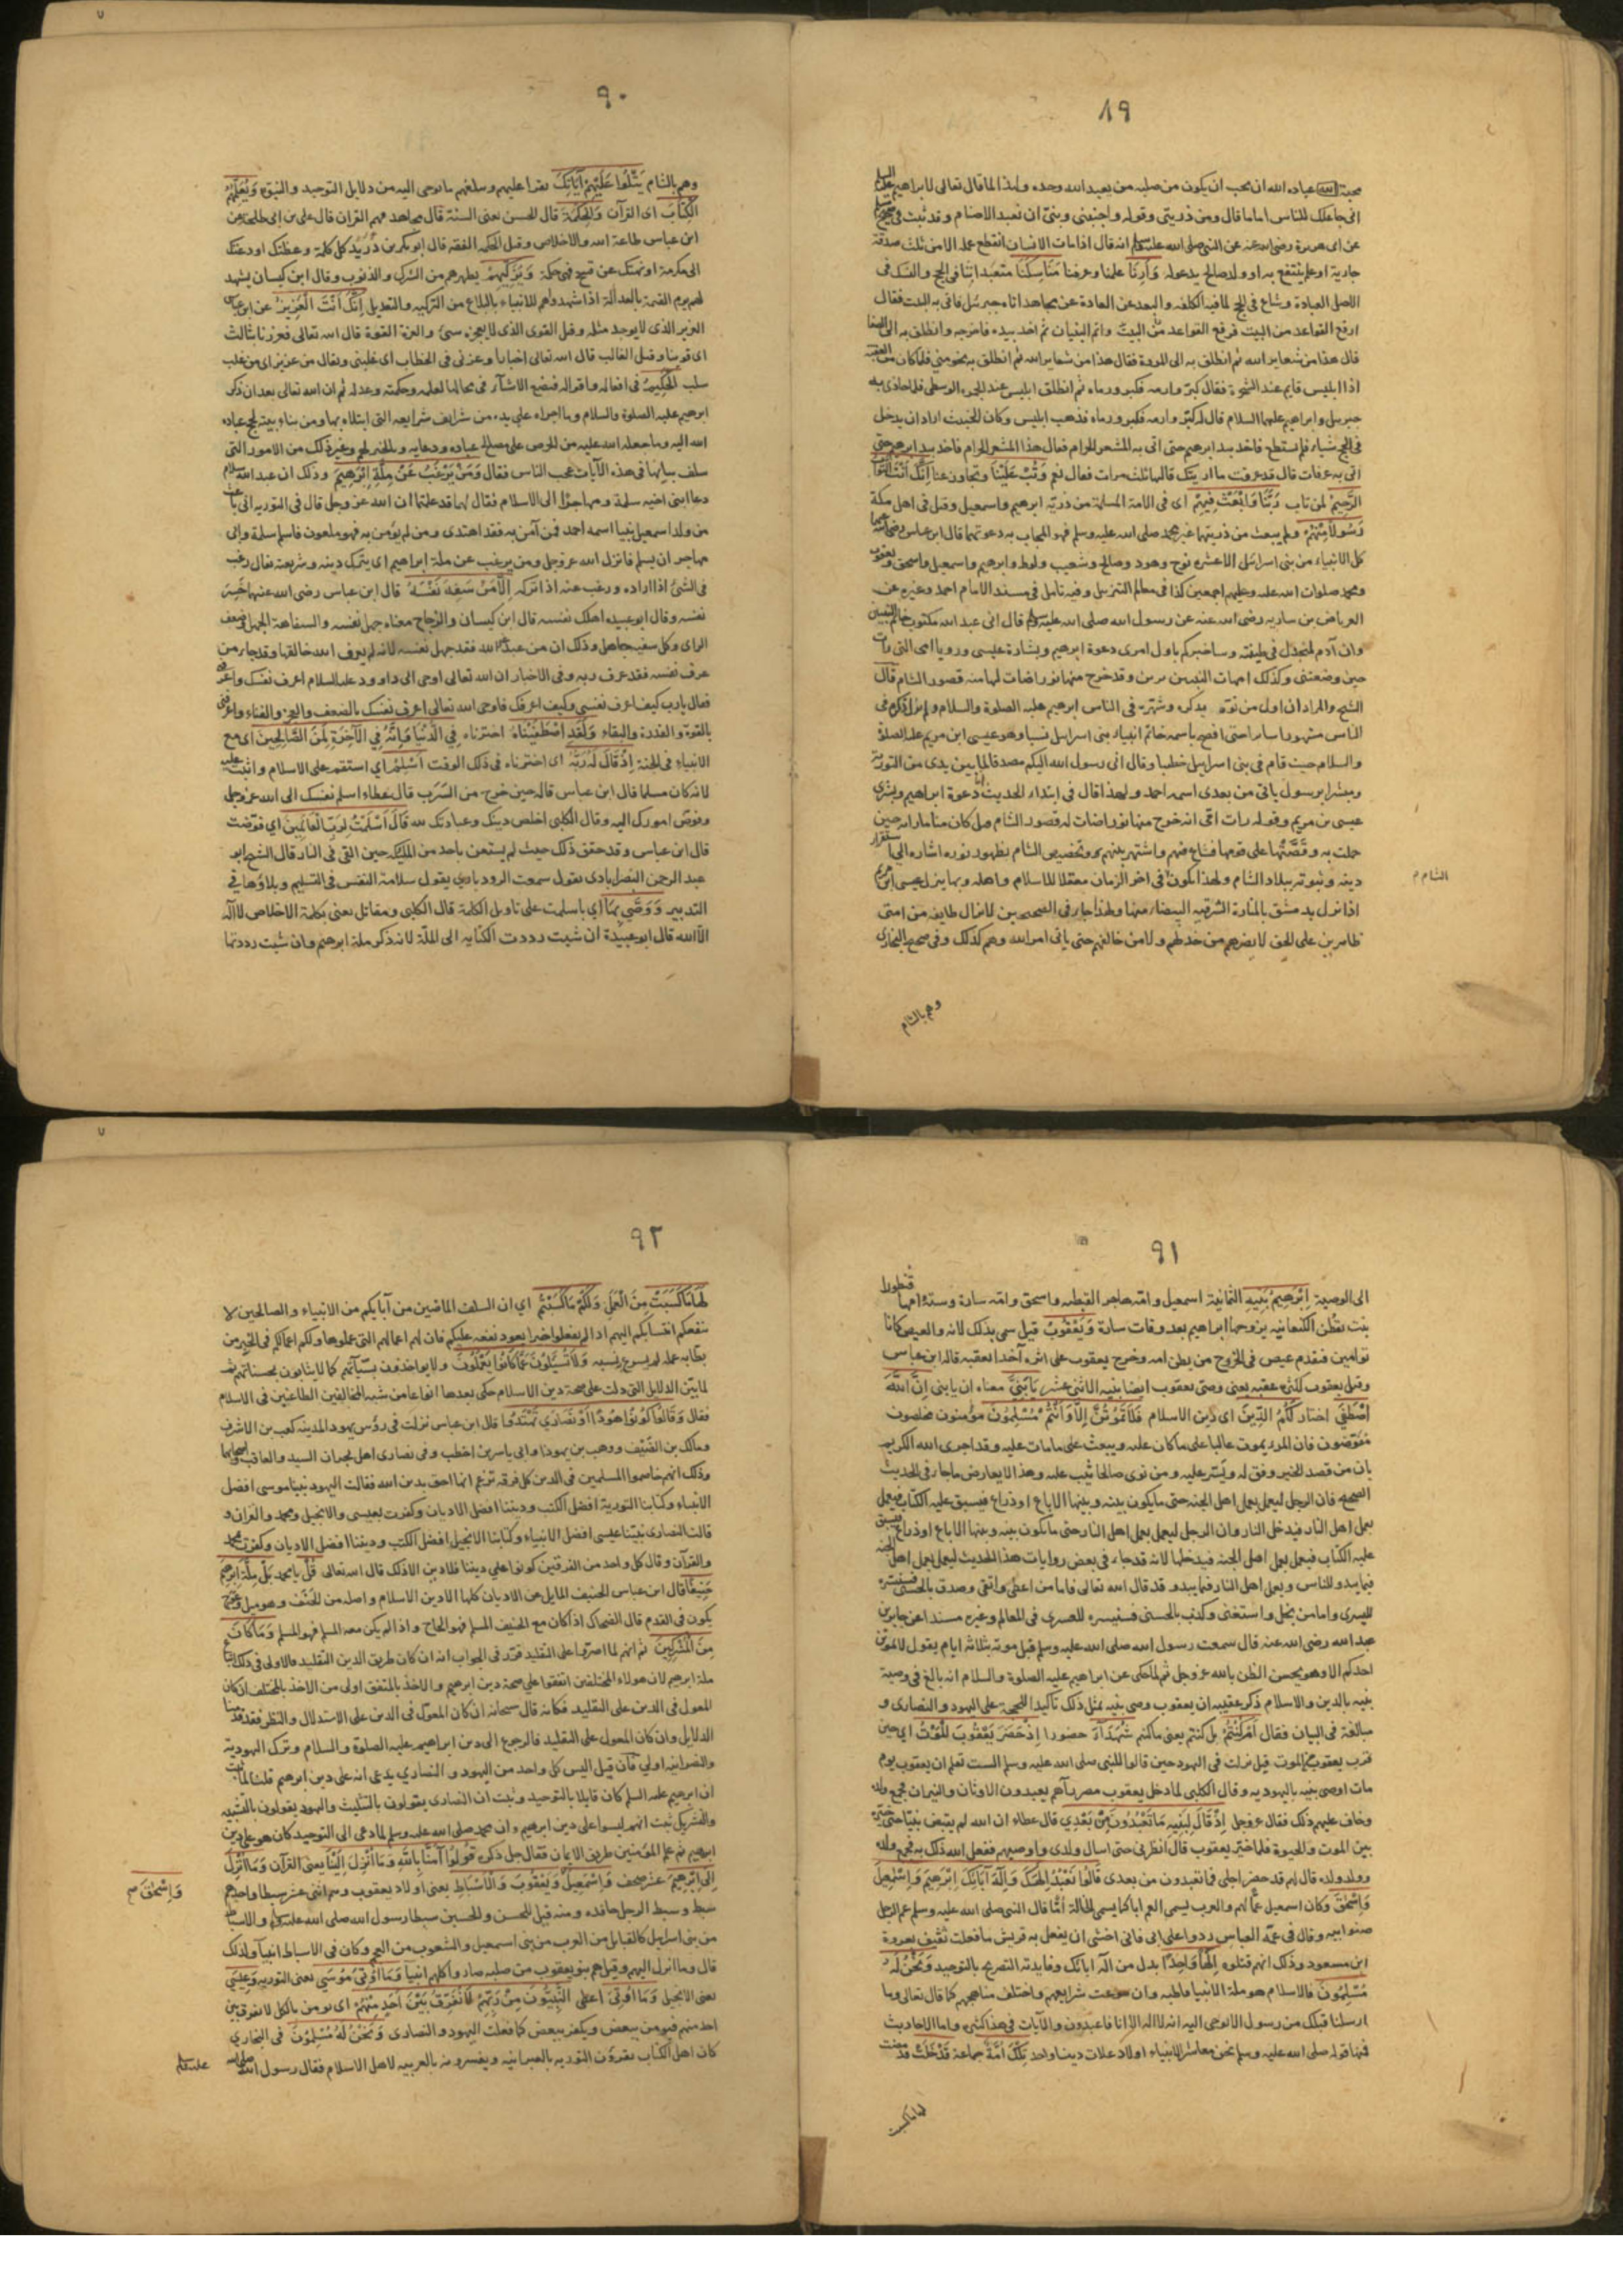 ٨٩
محبة الله عباده الله ان يحب ان يكون من صلبه من يعبد الله وحده ولهذا لما قال تعالى لابراهيم عليه السلام
انى جاعلك للناس اماما قال ومن ذريتى وقوله واجنبنى وبنىّ ان نعبد الاصنام وقد ثبت فى صحيح مسلم
عن ابى هريرة رضى الله عنه عن النبى صلى الله عليه وسلم انه قال اذا مات الانسان انقطع عمله الا من ثلث صدقة
جارية او علم ينتفع به او ولد صالح يدعو له وَأَرِنَا علمنا وعرفنا مَنَاسِكَنَا متعبداتنا فى الحج والنسك فى
الاصل العبادة وشاع فى الحج لما فيه الكلفه والبعد عن العادة عن مجاهد اتاه جبرئيل فاتى به البيت فقال
ارفع القواعد من البيت فرفع القواعد من البيت واتم البنيان ثم اخذ بيده فاخرجه وانطلق به الى الصفا
قال هذا من شعاير الله ثم انطلق به الى المروة فقال هذا من شعاير الله ثم انطلق به نحو منى فلما كان من العقبه
اذا ابليس قايم عند الشجرة فقال كبّر وارمه فكبر ورماه ثم انطلق ابليس عند الجمره الوسطى فلما حاذى به
جبريل وابراهيم عليهما السلام قال له كبّر وارمه فكبر ورماه فذهب ابليس وكان الخبيث اراد ان يدخل
فى الحج شياء فلم يستطع فاخذ بيد ابرهيم حتى اتى به المشعر الحرام فقال هذا المشعر الحرام فاخذ بيد ابرهيم حتى
اتى به عرفات قال قد عرفت ما اريتك قالها ثلث مرات فقال نعم وَتُبْ عَلَيْنَا وتجاوز عنا اِنَّكَ اَنْتَ التَّوَّابُ
الرَّحِيمُ لمن تاب رَبَّنَا وَابْعَثْ فِيهِمْ اى فى الامة المسلمة من ذريّة ابرهيم واسمعيل وقيل فى اهل مكة
رَسُولًا مِنْهُمْ ولم يبعث من ذريتهما غير محمد صلى الله عليه وسلم فهو المجاب به دعوتهما قال ابن عباس رضى الله عنهما
كل الانبياء من بنى اسرائيل الا عشره نوح وهود وصالح وشعيب ولوط وابرهيم واسمعيل واسحق ويعقوب
ومحمد صلوات الله عليه وعليهم اجمعين كذا فى معالم التنزيل وفيه تامل فى مسند الامام احمد وغيره عن
العرباض بن ساريه رضى الله عنه عن رسول الله صلى الله عليه وسلم قال انى عبد الله مكتوب خاتم النبيين
وان آدم لمنجدل فى طينته وساخبركم باول امرى دعوة ابرهيم وبشارة عيسى ورويا امى التى رات
حين وضعتنى وكذلك امهات النبيين يرين وقد خرج منها نور اضات لها منه قصور الشام قال
الشيخ والمراد ان اول من نوّه بذكره وشهره فى الناس ابرهيم عليه الصلوة والسلام ولم يزل ذكره فى
الناس مشهورا سايرا حتى افصح باسمه خاتم انبياء بنى اسرايل نسبا وهو عيسى ابن مريم عليه الصلوة
والسلام حيث قام فى بنى اسرايل خطيبا وقال انى رسول الله اليكم مصدقا لما بين يدى من التورية
ومبشرا برسول ياتى من بعدى اسمه احمد ولهذا قال فى ابتداء الحديث دعوة ابراهيم وبشرى
عيسى بن مريم وقوله رات امى انه خرج منها نور اضات له قصور الشام قيل كان مناما راته حين
حملت به وقَصَّتْها على قومها فشاع فيهم واشتهر بينهم وتخصيص الشام بظهور نوره اشاره الى استقرار
دينه ونبوته ببلاد الشام ولهذا يكون فى اخر الزمان معقلا للاسلام واهله وبها ينزل عيسى ابن مريم
الشام م
اذا نزل بدمشق بالمنارة الشرقيه البيضاء منها ولهذا جاء فى الصحيحين لا تزال طايفه من امتى
ظاهرين على الحق لا يضرهم من خذلهم ولا من خالفهم حتى ياتى امر الله وهم كذلك وفى صحيح البخارى
وهم بالشام
٩٠
وهم بالشام يَتْلُوا عَلَيْهِمْ آيَاتِكَ يقرا عليهم ويبلغهم ما يوحى اليه من دلايل التوحيد والنبوة وَيُعَلِّمُهُمُ
الْكِتَابَ اى القرآن وَالْحِكْمَةَ قال الحسن يعنى السنة قال مجاهد فهم القران قال على بن ابى طلحه عن
ابن عباس طاعة الله والاخلاص وقيل الحكمه الفقه قال ابو بكر بن دُرَيْد كل كلمة وعظتك او دعتك
الى مكرمة او نهتك عن قبيح فهى حكمة وَيُزَكِّيهِمْ يطهرهم من الشرك والذنوب وقال ابن كيسان يشهد
لهم يوم القيمة بالعدالة اذا شهدوا هم للانبياء بالبلاغ من التزكيه والتعديل اِنَّكَ اَنْتَ الْعَزِيزُ عن ابن عباس
العزيز الذى لا يوجد مثله وقيل القوى الذى لا يعجزه شئ والعزة القوة قال الله تعالى فعززنا بثالث
اى قوينا وقيل الغالب قال الله تعالى اخبارا وعزنى فى الخطاب اى غلبنى ويقال من عز بز اى من غلب
سلب الْحَكِيمُ فى افعاله واقواله فيضع الاشياء فى محالها لعلمه وحكمته وعدله ثم ان الله تعالى بعد ان ذكر
ابرهيم عليه الصلوة والسلام وما اجراه على يده من شرايف شرايعه التى ابتلاه بها ومن بناء بيته لحج عباده
الله اليه وما جعله الله عليه من الحرص على مصلح عباده ودعايه بالخير لهم وغير ذلك من الامور التى
سلف بيانها فى هذه الآيات عجب الناس فقال وَمَنْ يَرْغَبُ عَنْ مِلَّةِ اِبْرَهِيمَ وذلك ان عبد الله بن سلام
دعا ابنى اخيه سلمة ومهاجرًا الى الاسلام فقال لهما قد علمتما ان الله عز وجل قال فى التوريه انى باعث
من ولد اسمعيل نبيا اسمه احمد فمن آمن به فقد اهتدى ومن لم يؤمن به فهو ملعون فاسلم سلمة وابى
مهاجر ان يسلم فانزل الله عز وجل ومن يرغب عن ملة ابراهيم اى يترك دينه وشريعته يقال رغب
فى الشئ اذا اراده ورغب عنه اذا تركه اِلَّا مَنْ سَفِهَ نَفْسَهُ قال ابن عباس رضى الله عنهما خسر
نفسه وقال ابو عبيده اهلك نفسه قال ابن كيسان والزجاج معناه جهل نفسه والسفاهة الجهل وضعف
الراى وكل سفيه جاهل وذلك ان من عبد غير الله فقد جهل نفسه لانه لم يعرف الله خالقها وقد جاء من
عرف نفسه فقد عرف ربه وفى الاخبار ان الله تعالى اوحى الى داوود عليه السلام اعرف نفسك واعرفنى
فقال يارب كيف اعرف نفسى وكيف اعرفك فاوحى الله تعالى اعرف نفسك بالضعف والعجز والفناء واعرفنى
بالقوة والقدرة والبقاء وَلَقَدِ اصْطَفَيْنَاهُ اخترناه فِي الدُّنْيَا وَاِنَّهُ فِي الْآخِرَةِ لَمِنَ الصَّالِحِينَ اى مع
الانبياء فى الجنة اِذْ قَالَ لَهُ رَبُّهُ اى اخترناه فى ذلك الوقت اَسْلِمْ اي استقم على الاسلام واثبت عليه
لانه كان مسلما قال ابن عباس قاله حين خرج من السَّرَب قال عطاء اسلم نفسك الى الله عز وجل
وفوض امورك اليه وقال الكلبى اخلص دينك وعبادتك لله قَالَ اَسْلَمْتُ لِرَبِّ الْعَالَمِينَ اي فوّضت
قال ابن عباس وقد حقق ذلك حيث لم يستعن باحد من الملايكه حين القى فى النار قال الشيخ ابو
عبد الرحمن النصراباذى يقول سمعت الروذبادى يقول سلامة النفس فى التسليم وبلاؤها في
التدبير وَوَصَّى بِهَا اي باسلمت على تاويل الكلمة قال الكلبى ومقاتل يعنى بكلمة الاخلاص لا اله
الا الله قال ابو عبيدة ان شيت رددت الكنايه الى الملّة لانه ذكر ملة ابرهيم وان شيت رددتها
٩١
الى الوصية اِبْرَهِيمُ بَنِيهِ الثمانية اسمعيل وامه هاجر القبطيه واسحق وامّه سارة وستة امهم قنطورا
بنت يقطن الكنعانيه يزوجها ابراهيم بعد وفات سارة وَيَعْقُوبُ قيل سمى بذلك لانه والعيص كانا
توامين فتقدم عيص فى الخروج من بطن امه وخرج يعقوب على اثره آخذا بعقبه قاله ابن عباس
وقيل يعقوب لكثرة عقبه يعنى وصى يعقوب ايضا بنيه الاثنى عشر يَابَنِيَّ معناه ان يا بنى اِنَّ اللَّهَ
اصْطَفَى اختار لَكُمُ الدِّينَ اى دين الاسلام فَلَا تَمُوتُنَّ اِلَّا وَاَنْتُمْ مُسْلِمُونَ مؤمنون مخلصون
مفوّضون فان المرء يموت غالبا على ما كان عليه ويبعث على ما مات عليه وقد اجرى الله الكريم
بان من قصد الخير وفق له ويُسّر عليه ومن نوى صالحا ثيب عليه وهذا لا يعارض ما جاء فى الحديث
الصحيح فان الرجل ليعمل بعمل اهل الجنه حتى ما يكون بينه وبينها الا باع او ذراع فيسبق عليه الكتاب فيعمل
بعمل اهل النار فيدخل النار وان الرجل ليعمل بعمل اهل النار حتى ما يكون بينه وبينها الا باع او ذراع فيسبق
عليه الكتاب فيعمل بعمل اهل الجنه فيدخلها لانه قد جاء فى بعض روايات هذا الحديث ليعمل بعمل اهل الجنه
فيما يبدو للناس وبعمل اهل النار فيما يبدو وقد قال الله تعالى فاما من اعطى واتقى وصدق بالحسنى فسنيسره
لليسرى واما من بخل واستغنى وكذب بالحسنى فسنيسره للعسرى فى المعالم وغيره مسندا عن جابر بن
عبد الله رضى الله عنه قال سمعت رسول الله صلى الله عليه وسلم قبل موته بثلاثه ايام يقول لا يموتن
احدكم الا وهو يحسن الظن بالله عز وجل ثم لما حكى عن ابراهيم عليه الصلوة والسلام انه بالغ فى وصية
بنيه بالدين والاسلام ذكر عقيبه ان يعقوب وصى بنيه بمثل ذلك تاكيدا للحجة على اليهود والنصارى و
مبالغة فى البيان فقال اَمْ كُنْتُمْ بل كنتم يعنى ما كنتم شُهَدَآءَ حضورا اِذْ حَضَرَ يَعْقُوبَ الْمَوْتُ اي حين
قرب يعقوب من الموت قيل نزلت فى اليهود حين قالوا للنبى صلى الله عليه وسلم الست تعلم ان يعقوب يوم
مات اوصى بنيه باليهوديه وقال الكلبى لما دخل يعقوب مصر رآهم يعبدون الاوثان والنيران فجمع ولده
وخاف عليهم ذلك فقال عز وجل اِذْ قَالَ لِبَنِيهِ مَا تَعْبُدُونَ مِنْ بَعْدِي قال عطاء ان الله لم يقبض نبيّا حتى يخيّره
بين الموت والحيوة فلما خيّر يعقوب قال انظرنى حتى اسال ولدى واوصيهم ففعل الله ذلك به فجمع ولده
وولد ولده قال لهم قد حضر اجلى فما تعبدون من بعدى قَالُوا نَعْبُدُ اِلٰهَكَ وَاِلٰهَ آبَائِكَ اِبْرَهِيمَ وَاِسْمٰعِيلَ
وَاِسْحٰقَ وكان اسمعيل عمًّا لهم والعرب يسمى العم ابا كما يسمى الخالة امًّا قال النبى صلى الله عليه وسلم عم الرجل
صنو ابيه وقال فى عمّه العباس ردوا على ابى فانى اخشى ان يفعل به قريش ما فعلت ثقيف بعروة
ابن مسعود وذلك انهم قتلوه اِلٰهًا وَاحِدًا بدل من اله آبائك وفايدته التصريح بالتوحيد وَنَحْنُ لَهُ
مُسْلِمُونَ فالاسلام هو ملة الانبيا قاطبه وان تنوعت شرايعهم واختلف مناهجهم كما قال تعالى وما
ارسلنا قبلك من رسول الا نوحى اليه انه لا اله الا انا فاعبدون والآيات فى هذا كثيره واما الاحاديث
فمنها قوله صلى الله عليه وسلم نحن معاشر الانبياء اولاد علات ديننا واحد تِلْكَ اُمَّةٌ جماعة قَدْ خَلَتْ قد مضت
لها ما كسبت
٩٢
لَهَا مَا كَسَبَتْ مِنَ الْعَمَلِ وَلَكُمْ مَا كَسَبْتُمْ اي ان السلف الماضين من آبايكم من الانبياء والصالحين لا
ينفعكم انتسابكم اليهم اذا لم يفعلوا خيرا يعود نفعه عليكم فان لهم اعمالهم التى عملوها ولكم اعمالكم فى الخير من
بطا به عمله لم يسرع به نسبه وَلَا تُسْئَلُونَ عَمَّا كَانُوا يَعْمَلُونَ ولا يواخذون بسيّآتهم كما لا يثابون بحسناتهم ثم
لما بيّن الدلايل التى دلت على صحة دين الاسلام حكى بعدها انواعا من شبه المخالفين الطاعنين فى الاسلام
فقال وَقَالُوا كُونُوا هُودًا اَوْ نَصَارَى تَهْتَدُوا قال ابن عباس نزلت فى رؤس يهود المدينه كعب بن الاشرف
ومالك بن الضَّيْف ووهب بن يهوذا وابى ياسر بن اخطب وفى نصارى اهل نجران السيد والعاقب واصحابهما
وذلك انهم خاصموا المسلمين فى الدين كل فرقه تزعم انها احق بدين الله فقالت اليهود نبينا موسى افضل
الانبياء وكتابنا التورية افضل الكتب وديننا افضل الاديان وكفرت بعيسى والانجيل ومحمد والقران و
قالت النصارى نبيّنا عيسى افضل الانبياء وكتابنا الانجيل افضل الكتب وديننا افضل الاديان وكفرت بمحمد
والقرآن وقال كل واحد من الفريقين كونوا على ديننا فلا دين الا ذلك قال الله تعالى قُلْ يا محمد بَلْ مِلَّةَ اِبْرَهِيمَ
حَنِيفًا قال ابن عباس الحنيف المايل عن الاديان كلها الا دين الاسلام واصله من الحَنَف وهو ميل وعوج
يكون فى القدم قال الضحاك اذا كان مع الحنيف المسلم فهو الحاج واذا لم يكن معه المسلم فهو المسلم وَمَا كَانَ
مِنَ الْمُشْرِكِينَ ثم انهم لما اصروا على التقليد قرّر فى الجواب انه ان كان طريق الدين التقليد فالاولى فى ذلك اتباع
ملة ابرهيم لان هولاء المختلفين اتفقوا على صحة دين ابرهيم والاخذ بالمتفق اولى من الاخذ بالمختلف ان كان
المعول فى الدين على التقليد فكانه قال سبحانه ان كان المعوّل فى الدين على الاستدلال والنظر فقد قدمنا
الدلايل وان كان المعول على التقليد فالرجوع الى دين ابراهيم عليه الصلوة والسلام وترك اليهودية
والنصرانيه اولى فان قيل اليس كل واحد من اليهود والنصارى يدعى انه على دين ابرهيم قلت لما ثبت
ان ابرهيم عليه السلم كان قايلا بالتوحيد وثبت ان النصارى يقولون بالتثليث واليهود يقولون بالتشبيه
والتشريك ثبت انهم ليسوا على دين ابرهيم وان محمد صلى الله عليه وسلم لما دعى الى التوحيد كان هو على دين
ابرهيم ثم علم المؤمنين طريق الايمان فقال جل ذكره قُولُوا آمَنَّا بِاللَّهِ وَمَا اُنْزِلَ اِلَيْنَا يعنى القرآن وَمَا اُنْزِلَ
اِلَى اِبْرٰهِيمَ عشر صحف وَاِسْمٰعِيلَ وَيَعْقُوبَ وَالْاَسْبَاطِ يعنى اولاد يعقوب وهم اثنى عشر سبطا واحدهم
وَاِسْحٰقَ صح
سبط وسبط الرجل حافده ومنه قيل للحسن والحسين سبطا رسول الله صلى الله عليه وسلم والاسباط
من بنى اسرايل كالقبايل من العرب من بنى اسمعيل والشعوب من العجم وكان فى الاسباط انبيآ ولذلك
قال وما انزل اليهم وقيل هم بنو يعقوب من صلبه صاروا كلهم انبيا وَمَا اُوتِيَ مُوسَى يعنى التوريه وَعِيسَى
يعنى الانجيل وَمَا اُوتِيَ اعطى النَّبِيُّونَ مِنْ رَبِّهِمْ لَا نُفَرِّقُ بَيْنَ اَحَدٍ مِنْهُمْ اى نومن بالكل لا نفرق بين
احد منهم فنومن ببعض ونكفر ببعض كما فعلت اليهود والنصارى وَنَحْنُ لَهُ مُسْلِمُونَ فى البخارى
كان اهل الكتاب يقرؤن التوريه بالعبرانيه ويفسرونه بالعربيه لاهل الاسلام فقال رسول الله صلى الله
عليه وسلم